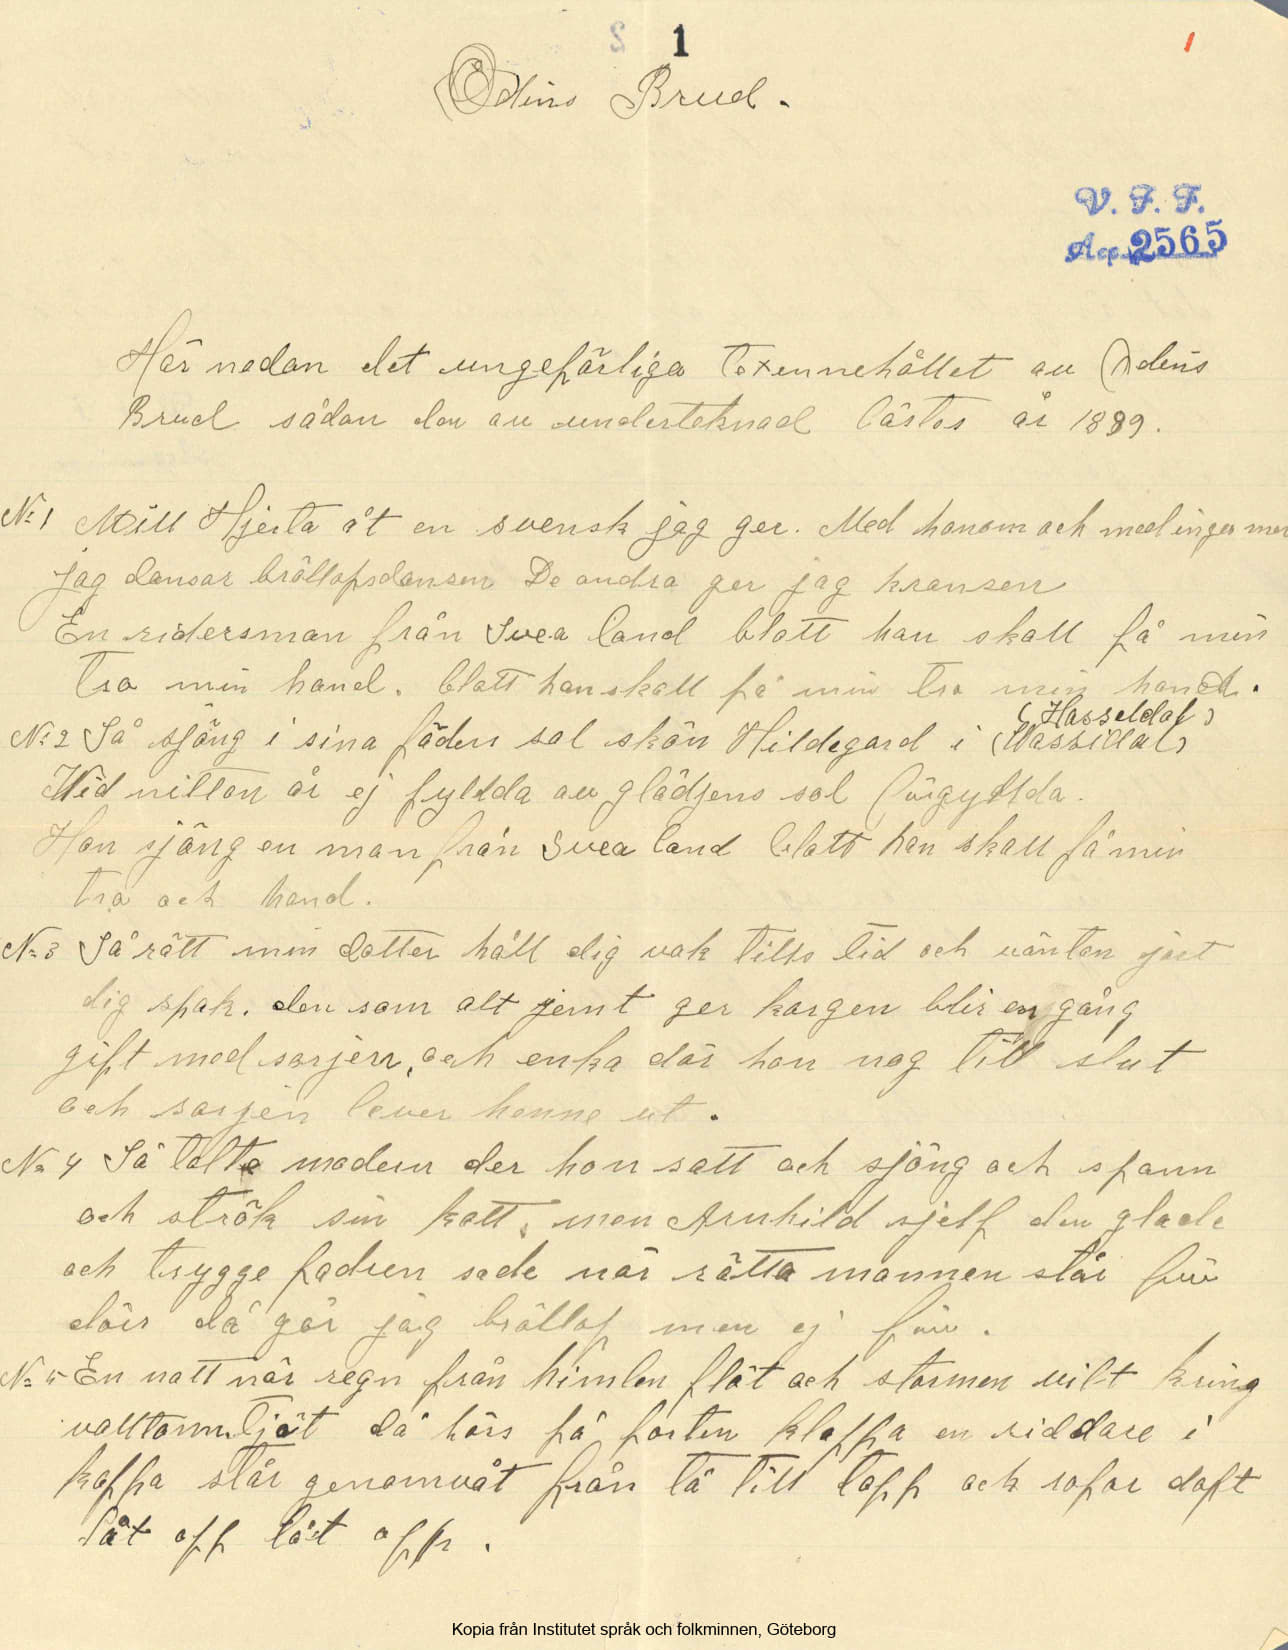 1
1
Odins Brud.
V. F. F.
Acp. 2565
Här nedan det ungefärliga texennehållet av Odens
Brud sådan den av underteknad lästes år 1889.
No 1 Mitt Hjerta åt en svensk jag ger. Med honom och med ingen mer
jag dansar bröllopsdansen De andra ger jag kransen
En ridersman från Svea land blott han skall få min
tro min hand. blott han skall få min tro min hand.
(Hasseldal)
No 2 Så sjöng i sina fäders sal skön Hildegard i (Wassidal)
Wid nitton år ej fyllda av glädjens sol förgyllda.
Hon sjöng en man från Svea land blott han skall få min
tro och hand.
No 3 Så rätt min dotter håll dig vak tills tid och väntan gjort
dig spak. den som alt jemt ger korgen blir en gång
gift med sorjen, och enka dör hon nog till slut
och sorjen lever henne ut.
No 4 Så talte modern der hon satt och sjöng och spann
och strök sin katt, men Arnhild sjelf den glade
och trygge fadren sade när rätta mannen står för
dörr då gör jag bröllop men ej förr.
No 5 En natt när regn från himlen flöt och stormen vilt kring
valltornn tjöt då hörs på porten kloppa en riddare i
kappa står genomvåt från tå till topp och ropar doft
låt opp låt opp.
Kopia från Institutet språk och folkminnen, Göteborg